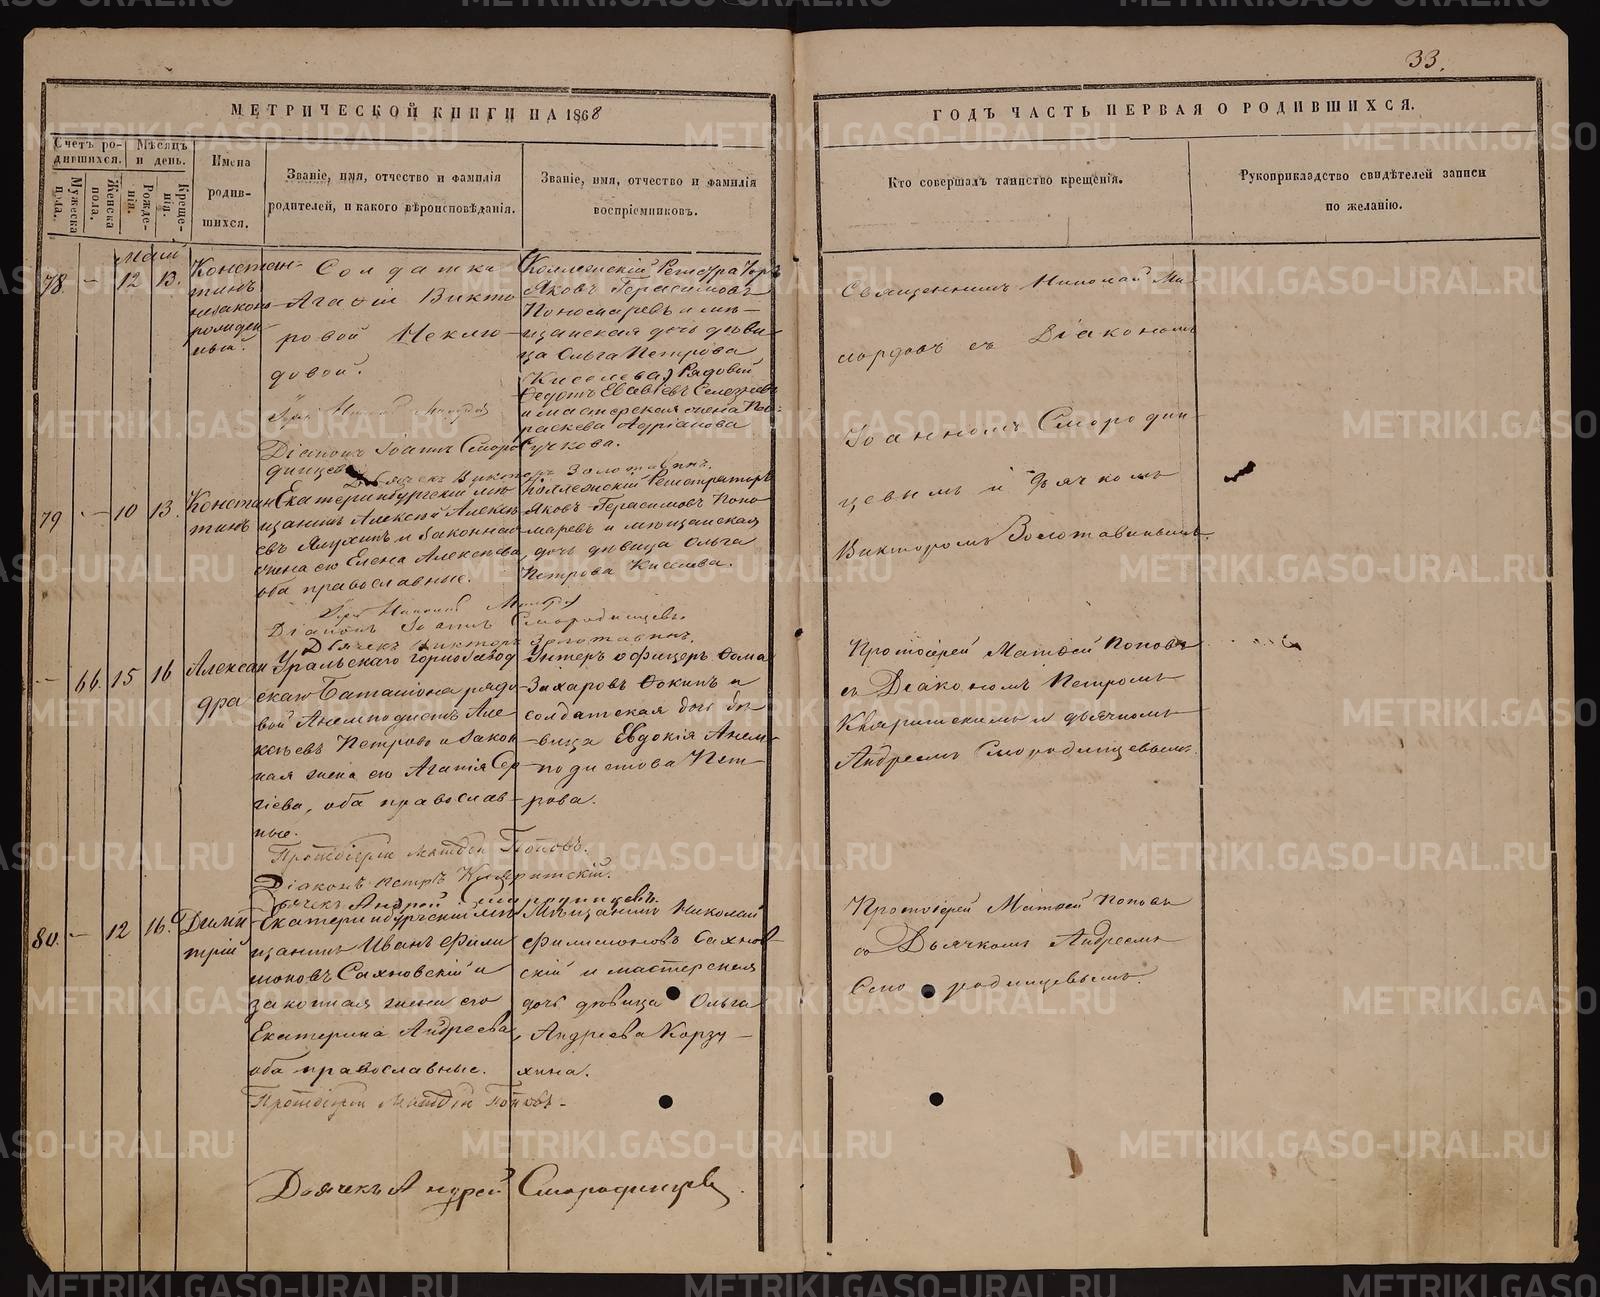 33.
МЕТРИЧЕСКОЙ КНИГИ НА 1868
ГОДЪ ЧАСТЬ ПЕРВАЯ О РОДИВШИХСЯ.
Счетъ ро-
дившихся.
Мужеска
пола.
Женска
пола.
Мѣсяцъ
и день.
Рожде-
нія.
Креще-
нія.
Имена
родив-
шихся.
Званіе, имя, отчество и фамилія
родителей, и какого вѣроисповѣданія.
Званіе, имя, отчество и фамилія
воспріемниковъ.
Кто совершалъ таинство крещенія.
Рукоприкладство свидѣтелей записи
по желанію.
Май
78. — 12 13.
Констан-
тинъ
незакон
рожден-
ный.
Солдатка
Агафіи Викто
ровой Неклю-
довой.
Діаконъ Іоаннъ Сморо
динцевъ
Дьячекъ Викторъ Золотавинъ.
Коллежскій Регистраторъ
Яковъ Герасимовъ
Пономаревъ и мѣ-
щанская дочь дѣви-
ца Ольга Петрова
(Киселева) Рядовой
Федотъ
и мастерская жена Па-
раскева Адріанова
Сучкова.
Священникъ Николай Ми-
лордовъ съ Діакономъ
Іоанномъ Смородин-
цевымъ и дьячкомъ
Викторомъ Золотавинымъ.
79 — 10 13.
Констан
тинъ
Екатеринбургскій мѣ
щанинъ Алексѣй Алексѣ
евъ и законная
жена его Елена Алексѣева,
оба православные.
Діаконъ Іоаннъ Смородинцевъ.
Дьячекъ Викторъ Золотавинъ.
Коллежскій Регистраторъ
Яковъ Герасимовъ Поно
маревъ и мѣщанская
дочь дѣвица Ольга
Петрова Киселева.
— 66. 15 16
Алексан
дра
Уральскаго горнозавод
скаго Баталіона рядо
вой Анемподистъ Але
ксѣевъ Петровъ и закон
ная жена его Агапія Сер
гіева, оба православ-
ные.
Протоіерей Матѳей Поповъ.
Діаконъ Петръ
Дьячекъ Андрей Смородинцевъ.
Унтеръ офицеръ Ѳома
Захаровъ Ѳокинъ и
солдатская дочь дѣ
-вица Евдокія Анем-
подистова Пет-
рова.
Протоіерей Матѳей Поповъ
съ Діакономъ Петромъ
и дьячкомъ
Андреемъ Смородинцевымъ.
80. — 12 16.
Дими
трій
Екатеринбургскій мѣ
щанинъ Иванъ Фили
моновъ Сахновскій и
законная жена его
Екатерина Андреева,
оба православные.
Протоіерей Матѳей Поповъ.
Дьячекъ Андрей Смородинцевъ.
Мѣщанинъ Николай
Филимоновъ Сахнов-
скій и мастерская
дочь дѣвица Ольга
Андреева Корзу-
хина.
Протоіерей Матѳей Поповъ
съ Дьячкомъ Андреемъ
Смородинцевымъ.
METRIKI.GASO-URAL.RU